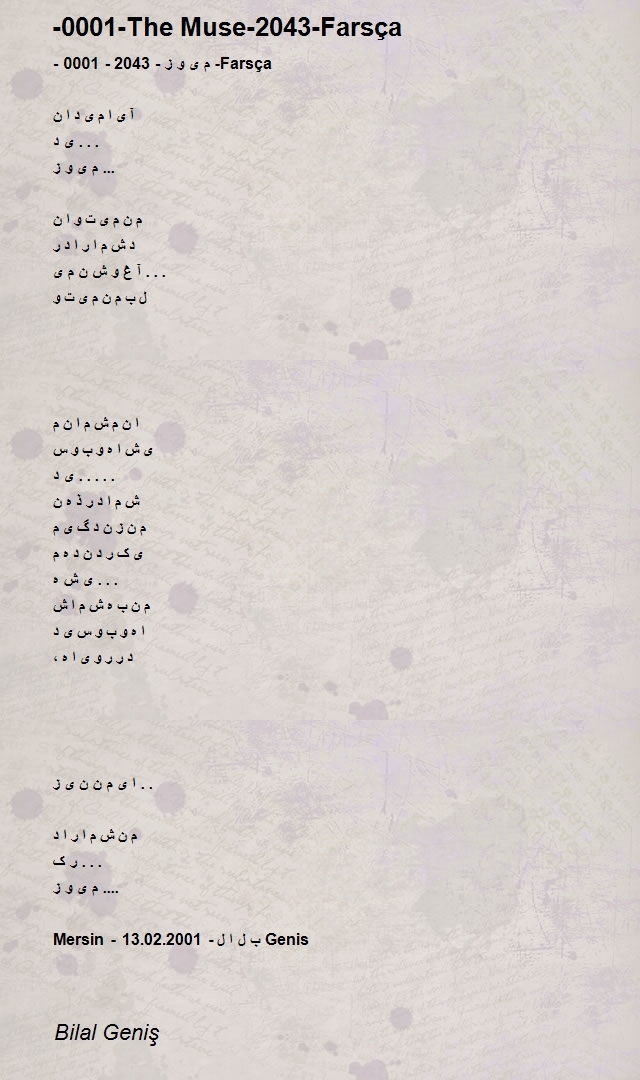 -0001-The Muse-2043-Farsça
- 0001 - 2043 - م ی و ز -Farsça
آ ی ا م ی د ا ن
ی د . . .
م ی و ز ...
م ن م ی ت و ا ن
د ش م ا ر ا د ر
آ غ و ش ن م ی . . .
ل ب م ن م ی ت و
ا ن م ش م ا ن م
ی ش ا ه و ب و س
ی د . . . . .
ش م ا د ر ذ ه ن
م ن ز ن د گ ی م
ی ک ر د ن د ه م
ی ش ه . . .
م ن ب ه ش م ا ش
ا ه و ب و س ی د
د ر ر و ی ا ه ،
ا ی م ن ن ی ز . .
م ن ش م ا ر ا د
ر ک . . .
م ی و ز ....
Mersin - 13.02.2001 - ب ل ا ل Genis
Bilal Geniş